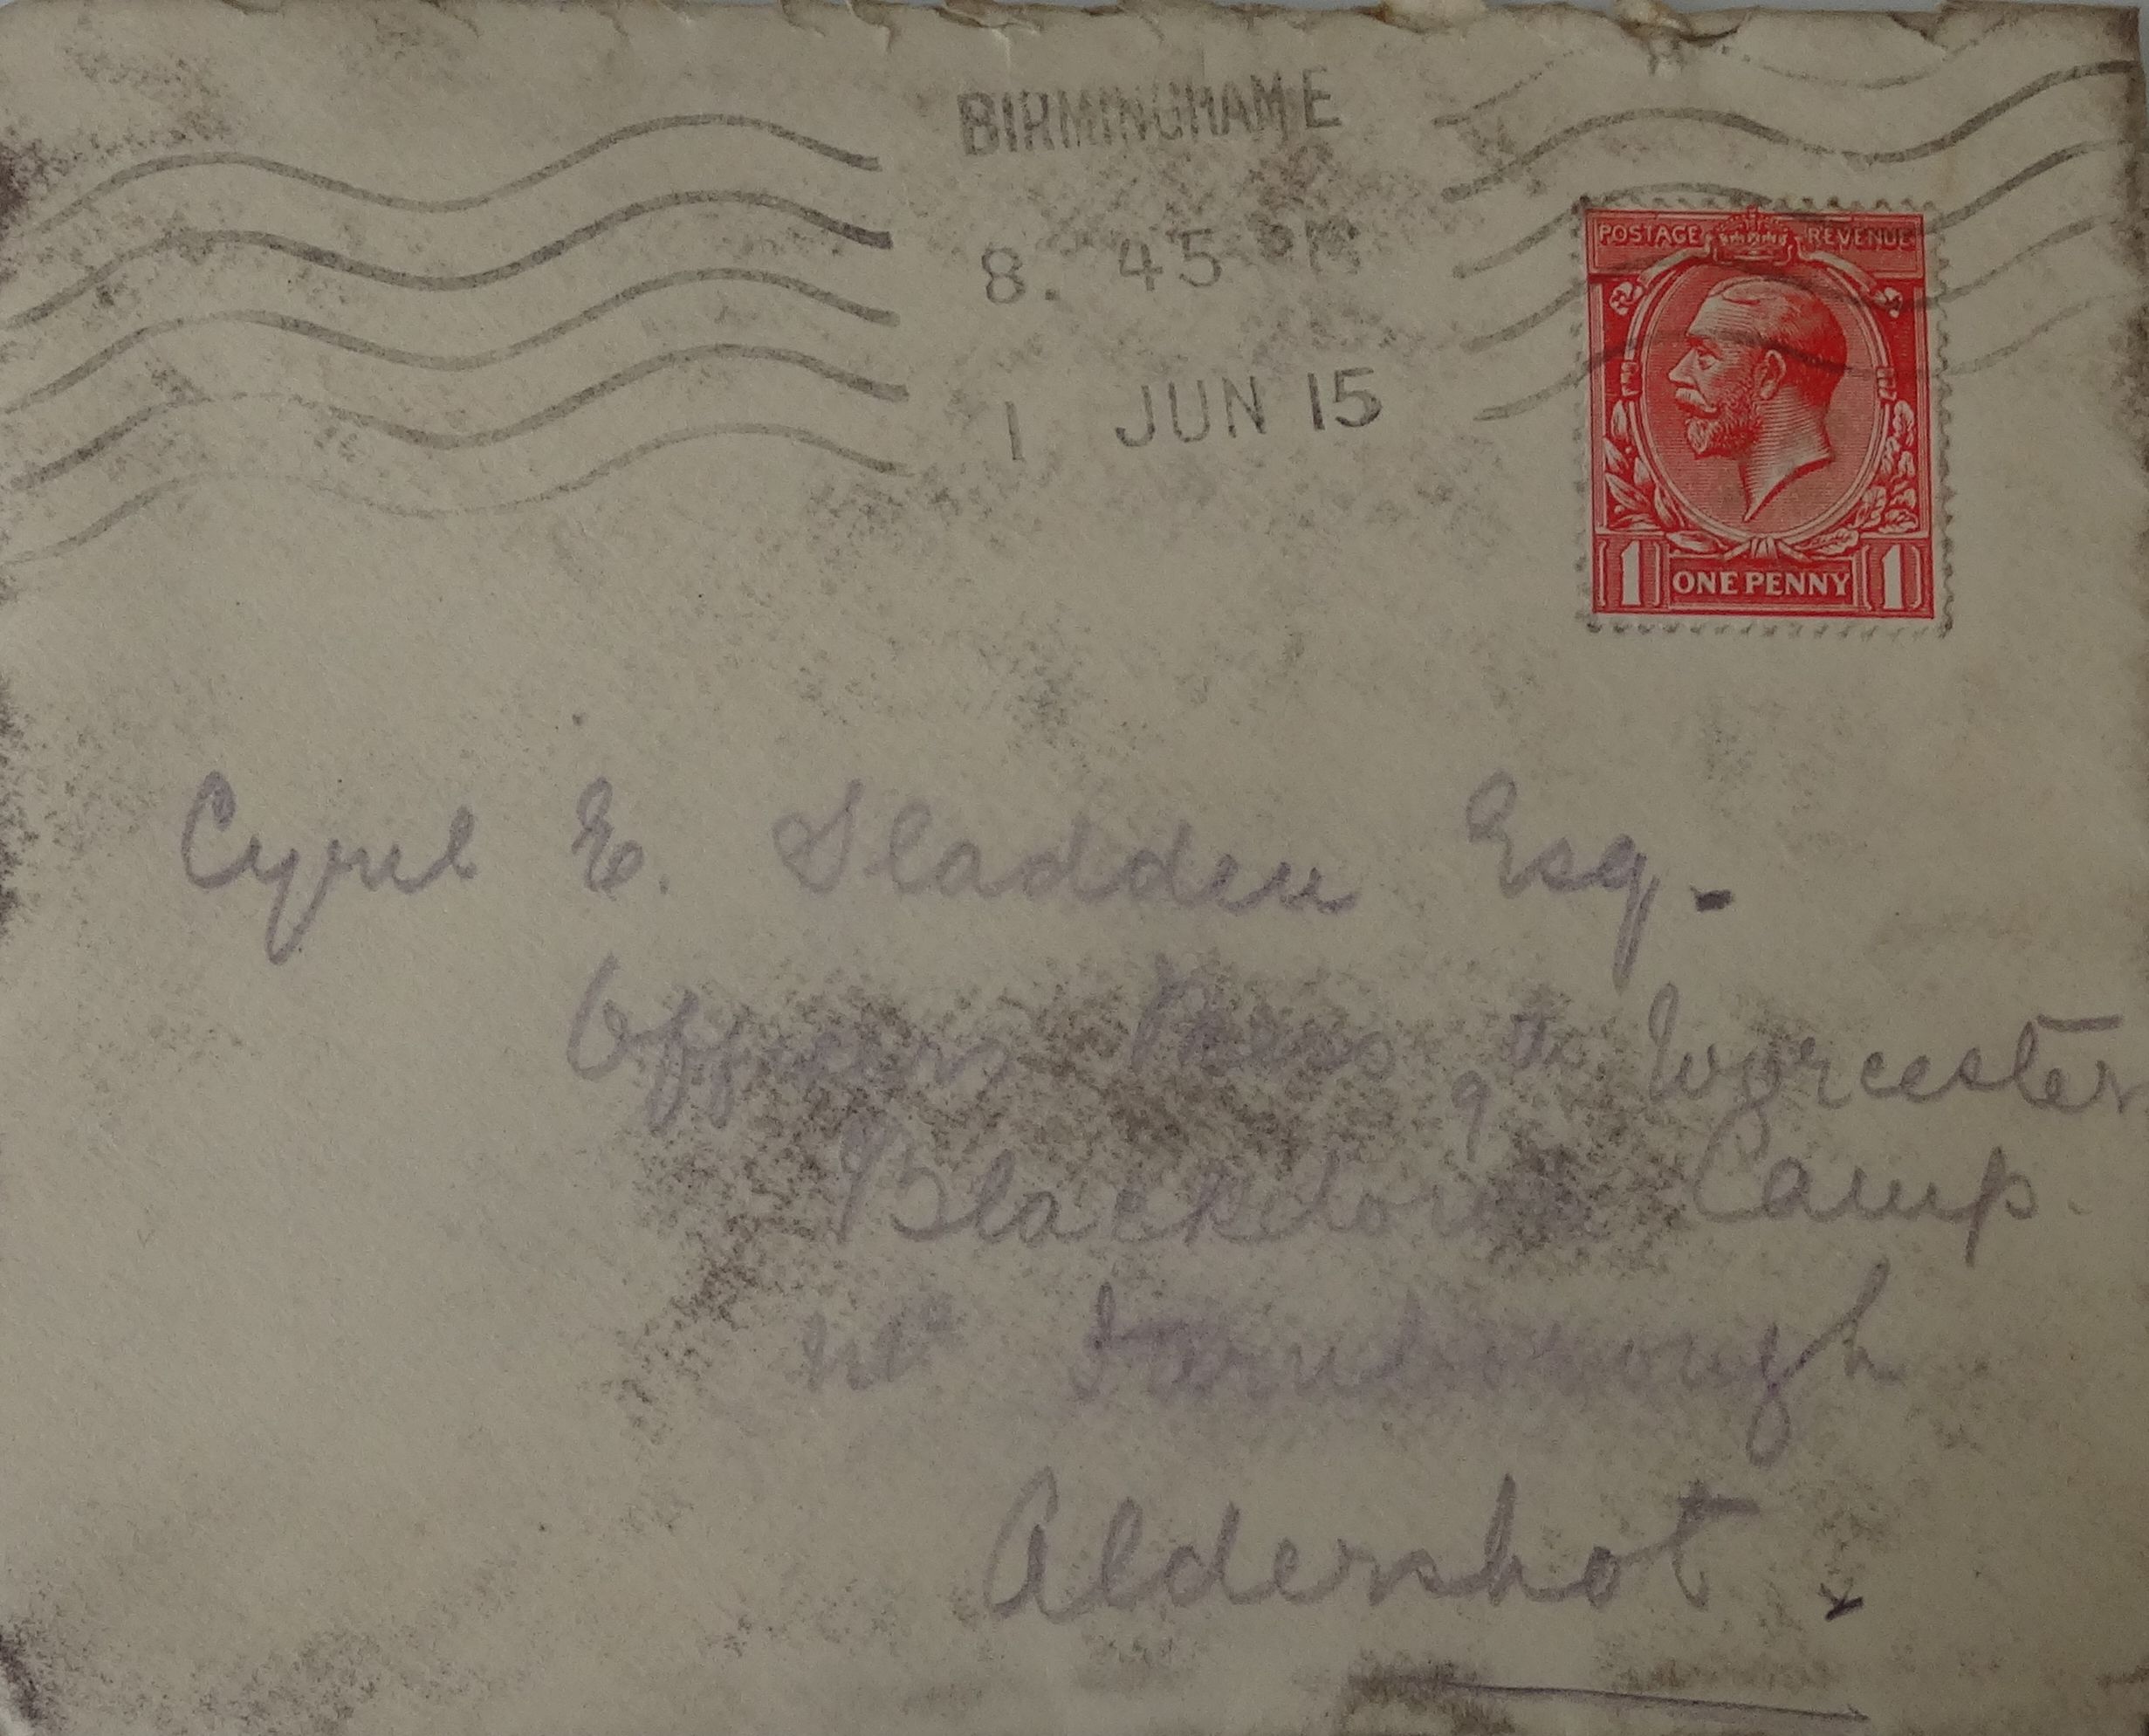 BIRMINGHAM E
8. 45 PM
1 JUN 15
POSTAGE REVENUE
1 ONE PENNY 1
Cyril E. Sladden Esq.
Officers Mess 9th Worcester
Blackdown Camp.
Nr Farnborough
Aldershot